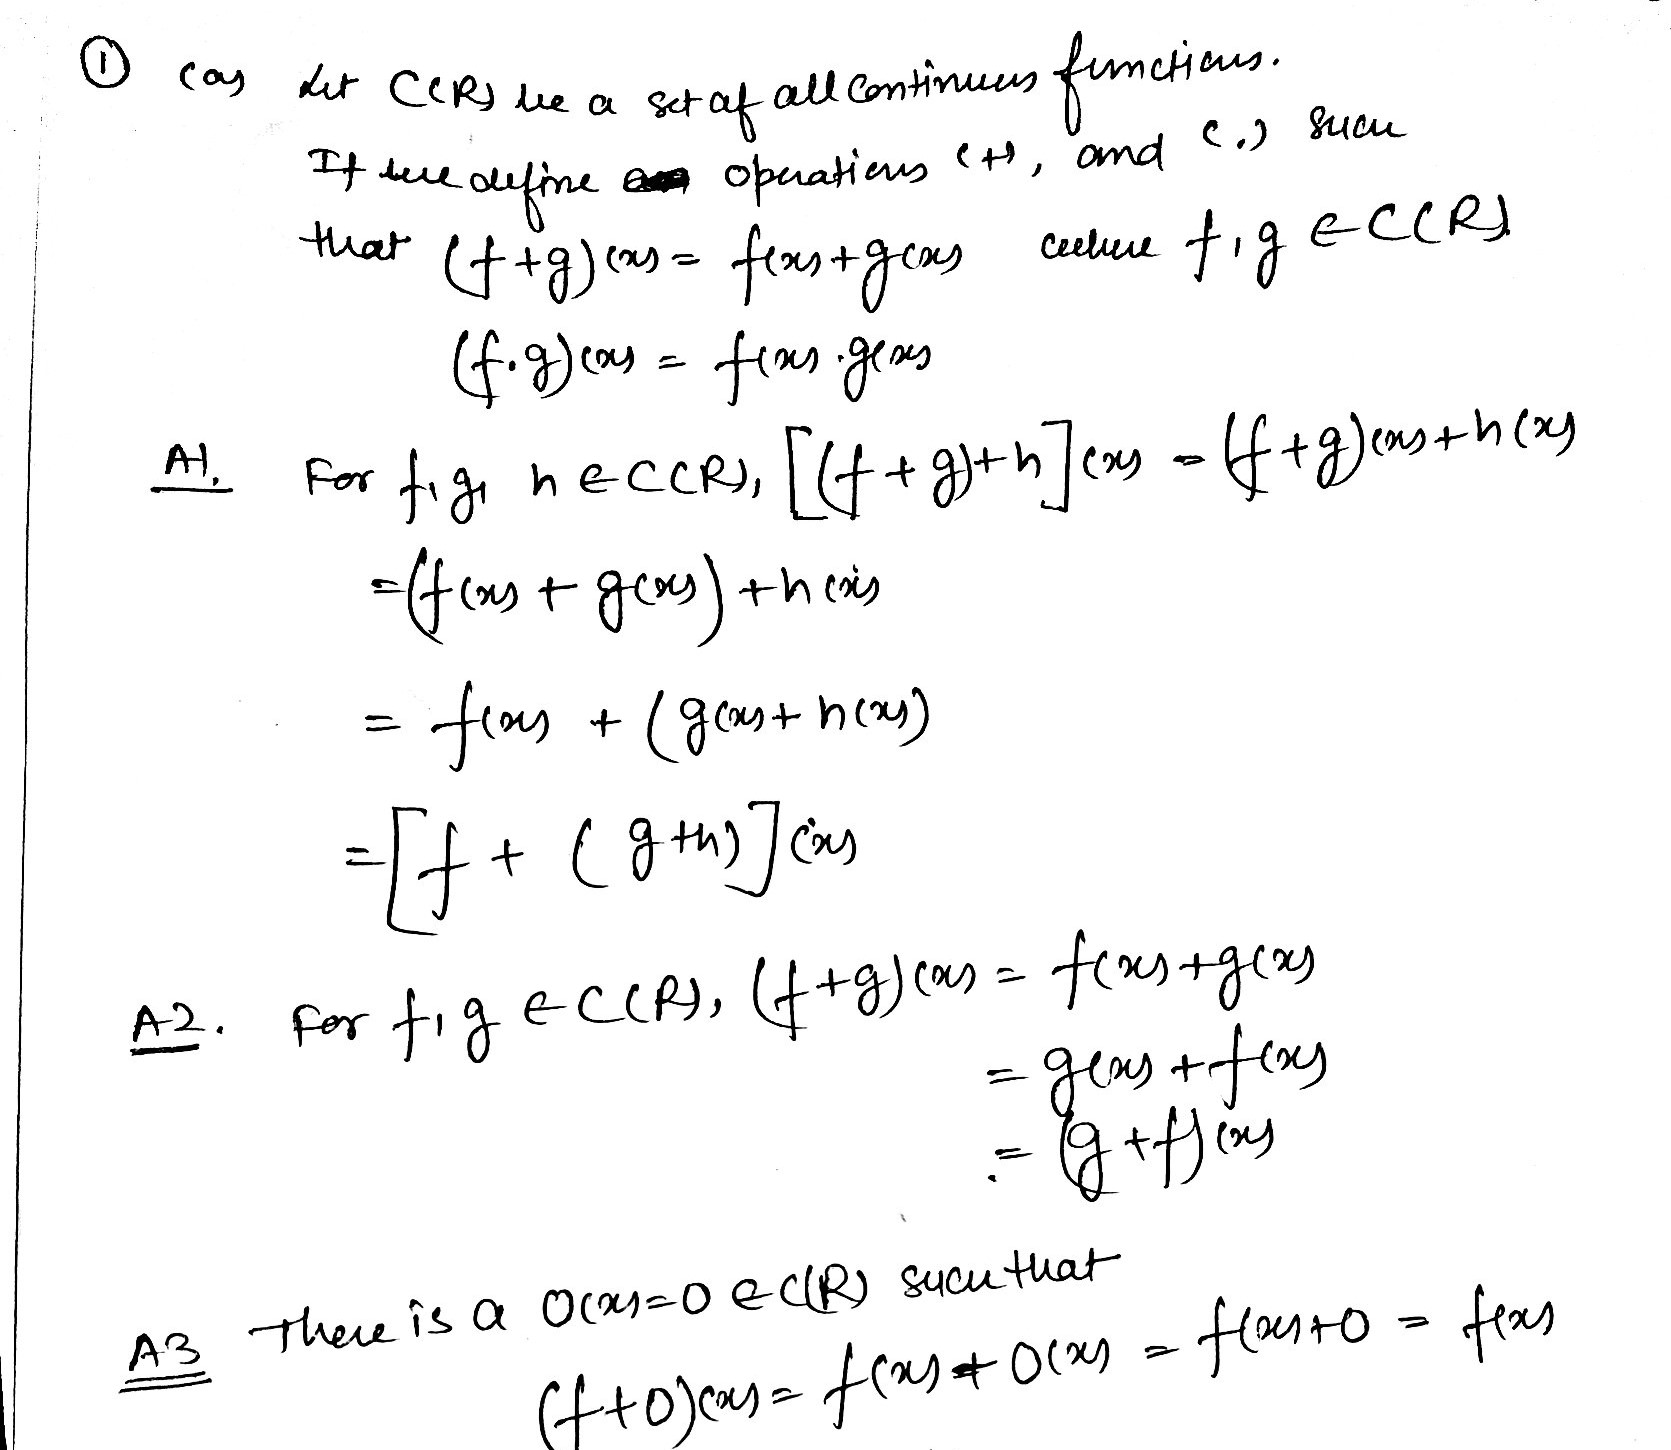 ① (a) Let C(R) be a set of all continuous functions.
If we define operations (+), and (.) such
that (f+g)(x) = f(x)+g(x) where f, g ∈ C(R)
(f.g)(x) = f(x).g(x)
A1. For f, g, h ∈ C(R), [(f+g)+h](x) = (f+g)(x)+h(x)
=(f(x) + g(x))+h(x)
= f(x) + (g(x)+h(x))
=[f + (g+h)](x)
A2. For f, g ∈ C(R), (f+g)(x) = f(x)+g(x)
= g(x)+f(x)
= (g+f)(x)
A3 There is a O(x)=0 ∈ C(R) such that
(f+0)(x)= f(x)+0(x) = f(x)+0 = f(x)